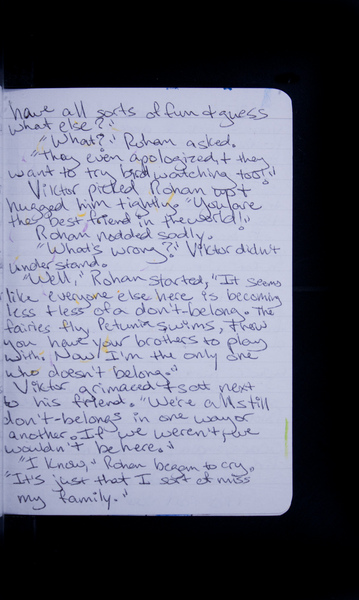 have all sorts of fun & guess
what else?"
"What?" Rohan asked.
"They even apologized & they
want to try bird watching too!"
Viktor picked Rohan up &
hugged him tightly. "You are
the best friend in the world!"
Rohan nodded sadly.
"What's wrong?" Viktor didn't
understand.
"Well," Rohan started, "It seems
like everyone else here is becoming
less & less of a don't-belong. The
fairies fly Petunia swims, & now
you have your brothers to play
with. Now I'm the only one
who doesn't belong."
Viktor grimaced & sat next
to his friend. "We're all still
don't-belongs in one way or
another. If we weren't, we
wouldn't be here."
"I know," Rohan began to cry.
"It's just that I sort of miss
my family."